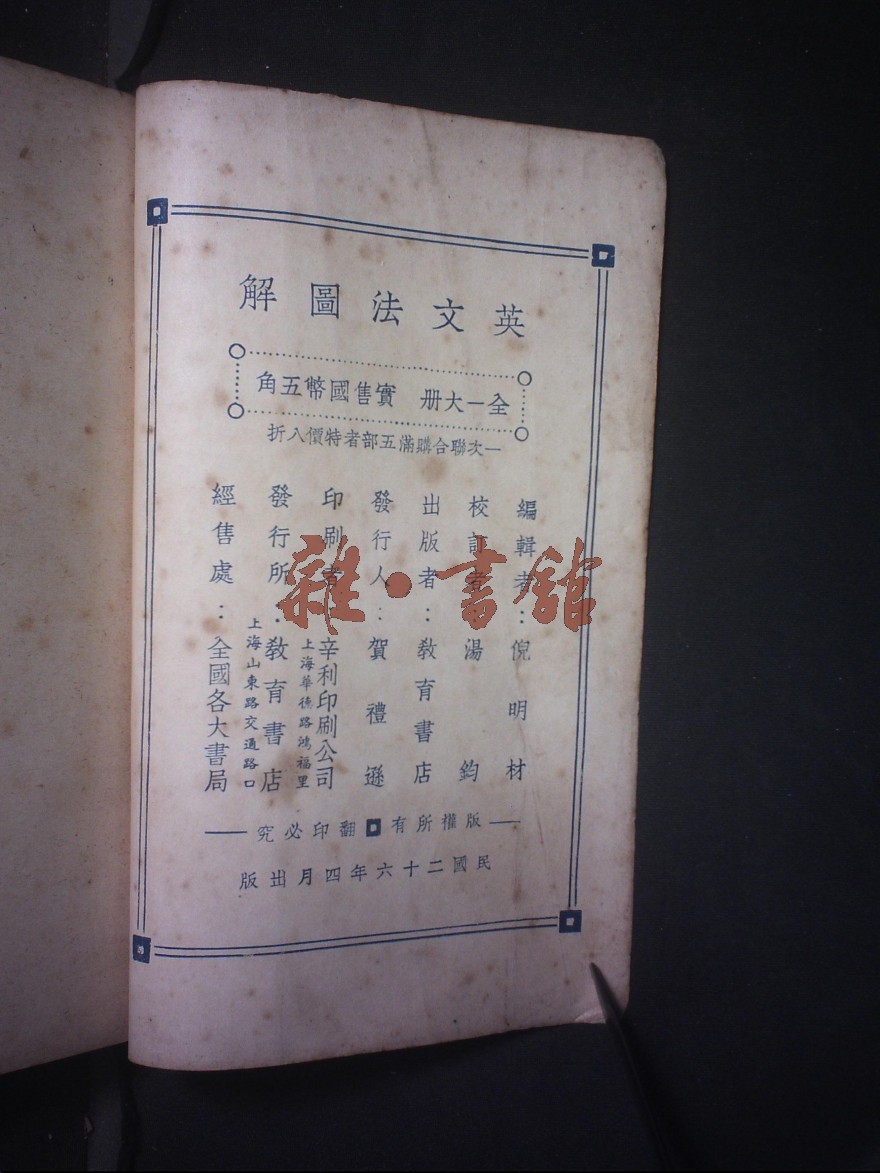 英文法圖解
全一大册 實售國幣五角
一次聯合購滿五部者特價八折
編輯者：倪明材
校訂者 湯鈞
出版者：教育書店
發行人：賀禮遜
印刷者 辛利印刷公司
上海華德路鴻福里
發行所：教育書店
上海山東路交通路口
經售處：全國各大書局
版權所有 翻印必究
民國二十六年四月出版
雜·書館